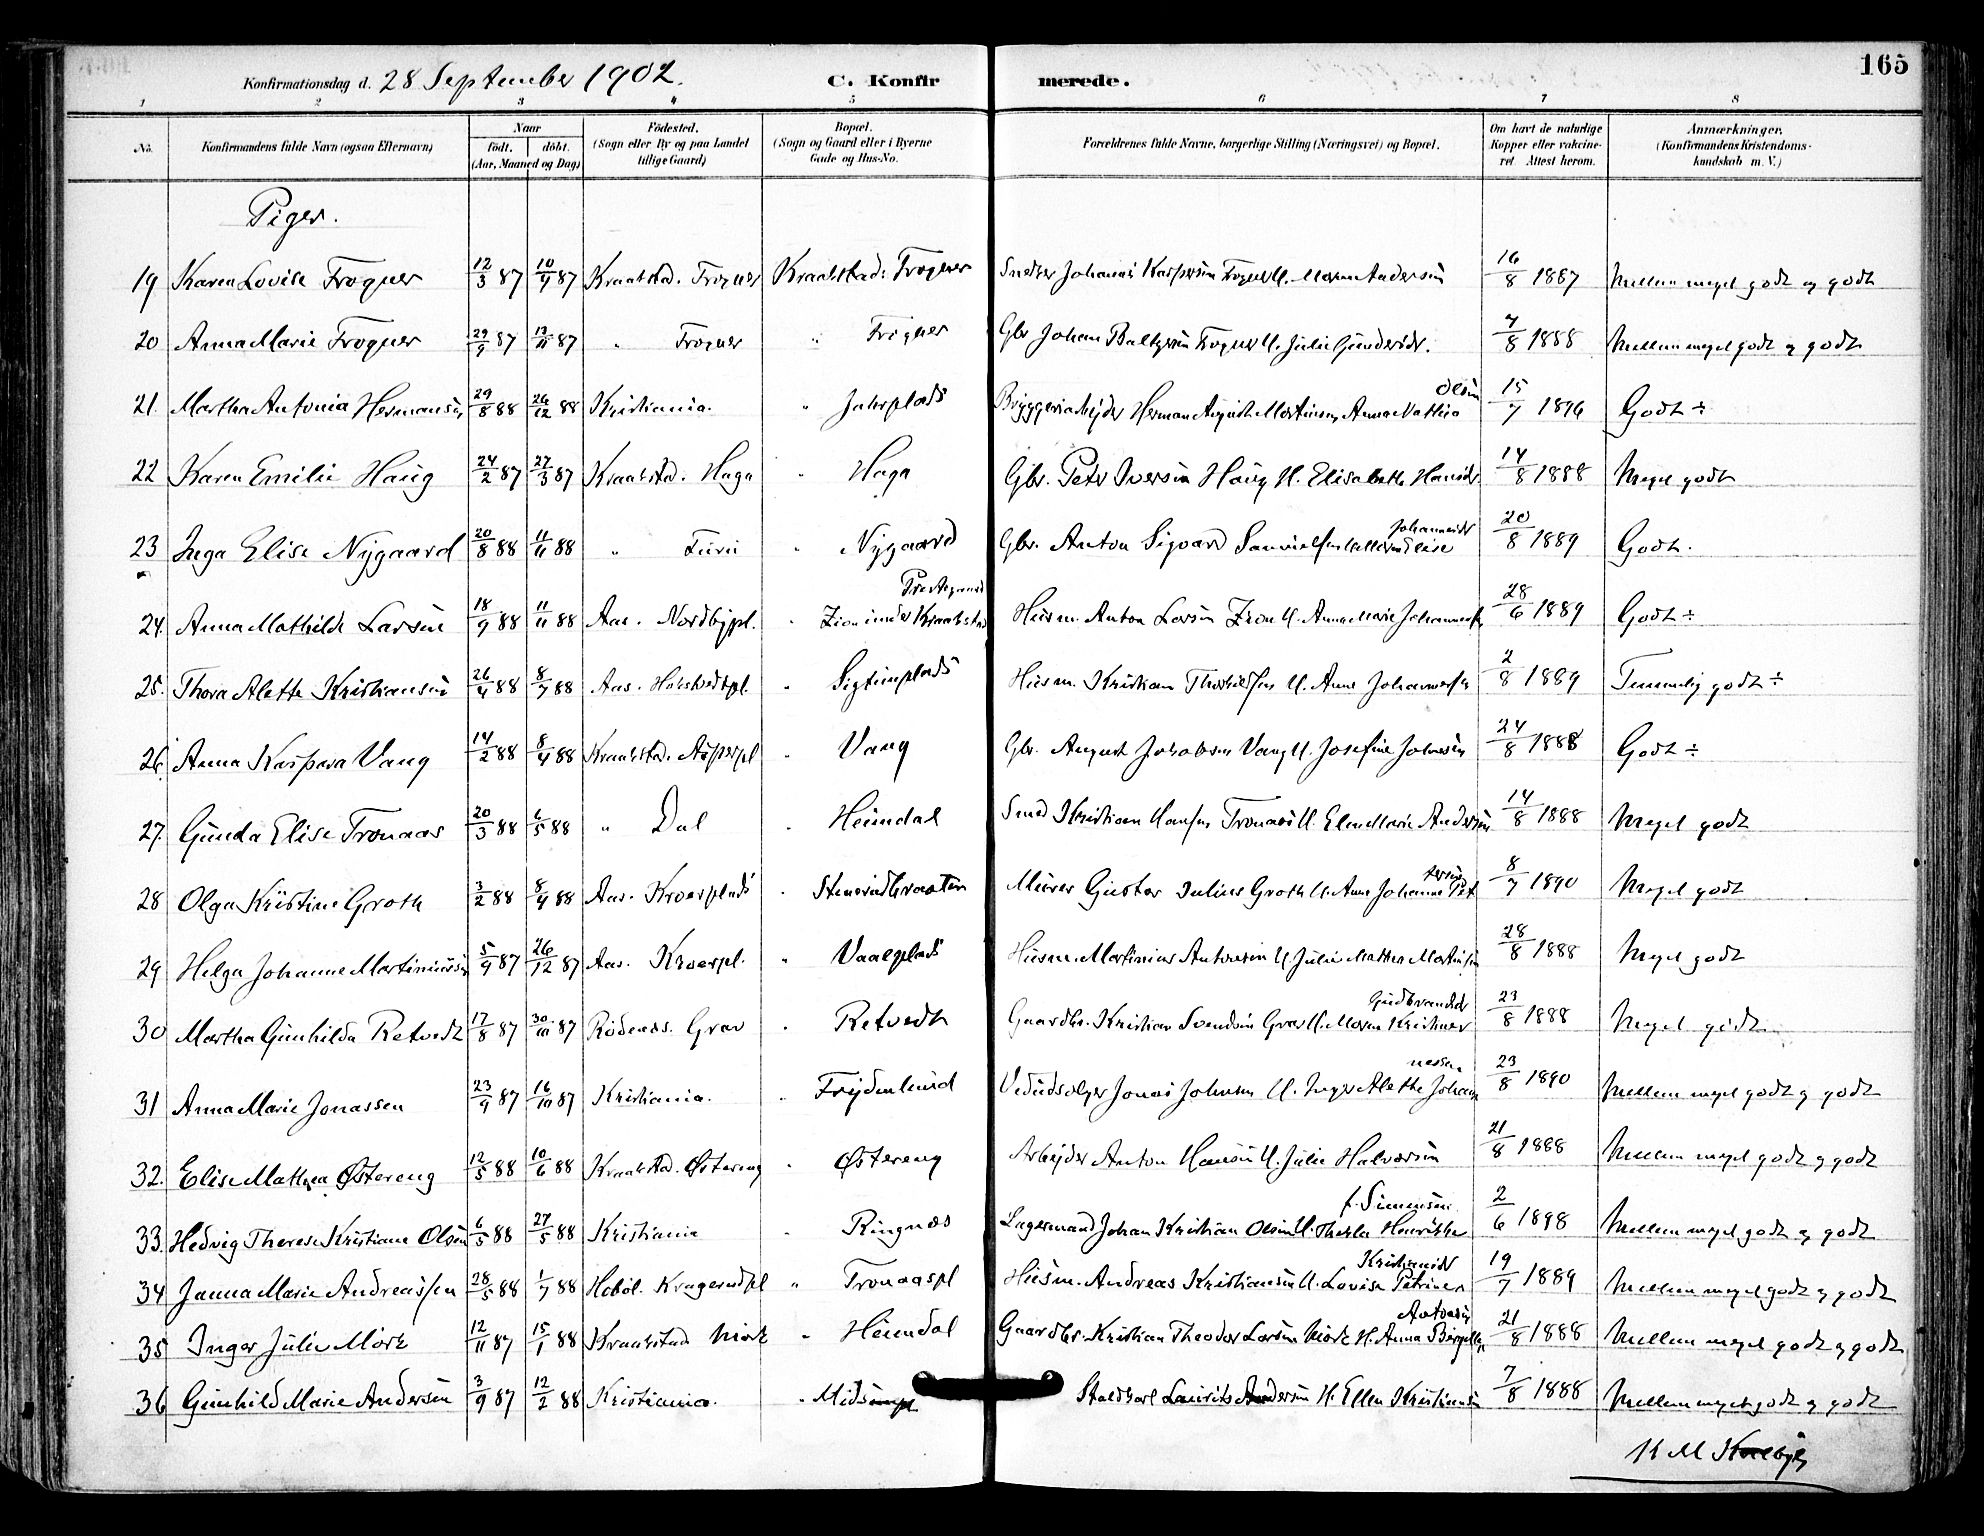 165
Konfirmationsdag d. 28 September 1902. C. Konfirmerede.
1 2 3 4 5 6 7 8
No. Konfirmandens fulde Navn (ogsaa Efternavn) Naar født. døbt. (Aar, Maaned og Dag) Fødested. (Sogn eller By og paa Landet tillige Gaard) Bopæl. (Sogn og Gaard eller i Byerne Gade og Hus-No. Forældrenes fulde Navne, borgerlige Stilling (Næringsvei) og Bopæl. Om havt de naturlige Kopper eller vakcineret. Attest herom. Anmærkninger. (Konfirmandens Kristendomskundskab m. V.)
Piger.
19 Karen Lovise Frogner 12/3 87 10/4 87 Kraakstad. Frogner Kraakstad. Frogner Snedker Johannes Kaspersen Frogner H. Maren Andersen 16/8 1887 Mellem meget godt og godt
20 Anna Marie Frogner 29/9 87 13/11 87 " Frogner " Frogner Gbr Johan Baltzersen Frogner H. Julie Gundersdr. 7/8 1888 Mellem meget godt og godt
21. Martha Antonia Hermansen 29/8 88 26/12 88 Kristiania. " Jahrplads Bryggeriarbejder Herman August Martinsen, Anna Mathea Olsen 15/7 1896 Godt ÷
22 Karen Emilie Haug 24/2 87 27/3 87 Kraakstad. Haga " Haga Gbr. Peter Iversen Haug H. Elisabeth Hansdr. 14/8 1888 Meget godt
23 Inga Elise Nygaard 20/8 88 11/11 88 " Furu " Nygaard Gbr. Anton Sigvard Samuelsen H. Maren Elise Johannesdr 20/8 1889 Godt.
24. Anna Mathilde Larsen 18/9 88 11/11 88 Aas. Nordbypl. " Zion under Kraakstad Prestegaard Husm. Anton Larsen Zion H. Anna Marie Johannesen 28/6 1889 Godt ÷
25. Thora Alette Kristiansen 26/4 88 8/7 88 Aas. Holstvedtpl. " Sigtunplads Husm. Kristian Thorkildsen H. Anne Johannesen 2/8 1889 Temmelig godt ÷
26. Anna Kaspara Vang 14/2 88 8/4 88 Kraakstad. Audserpl " Vang Gbr. August Jakobsen Vang H. Josefine Johnsen 24/8 1888 Godt ÷
27. Gunda Elise Tronaas 20/3 88 6/5 88 " Dal " Heimdal Smed Kristian Hansen Tronaas H. Elen Marie Andersen 14/8 1888 Meget godt
28 Olga Kristine Groth 3/2 88 8/4 88 Aas. Kroerplads " Stenerudbraaten Murer Gustav Julius Groth H. Anne Johanne Petersen 8/7 1890 Meget godt
29 Helga Johanne Martiniussen 5/9 87 26/12 87 Aas. Kroerpl. " Vaalplads Husm. Martinius Antonsen H. Julie Mathea Martinsen 28/8 1888 Meget godt
30 Martha Gunhilda Retvedt 17/8 87 30/10 87 Rødenes. Grav " Retvedt Gaardbr. Kristian Svendsen Grav H. Maren Kristine Gudbrandsdr 23/8 1888 Meget godt
31 Anna Marie Jonassen 23/9 87 16/10 87 Kristiania. " Frydenlund Vedudsælger Jonas Johnsen H. Inger Alette Johannessen 23/8 1890 Mellem meget godt og godt
32. Elise Mathea Østereng 12/5 88 10/6 88 Kraakstad. Østereng " Østereng Arbejder Anton Hansen H. Julie Halvorsen 21/8 1888 Mellem meget godt og godt
33. Hedvig Therese Kristiane Olsen 6/5 88 27/5 88 Kristiania " Ringnes Lagermand Johan Kristian Olsen H. Thekla Henrikke f. Simensen 2/6 1898 Mellem meget godt og godt
34 Janna Marie Andreassen 28/5 88 1/7 88 Hobøl. Kragerudpl " Tronaaspl Husm. Andreas Kristiansen H. Lovise Petrine Kristiansdr 19/7 1889 Mellem meget godt og godt
35 Inger Julie Mørk 12/11 87 15/1 88 Kraakstad Mørk " Heimdal Gaardbr. Kristian Theodor Larsen Mørk H. Anna Birgitte Antonsen 21/8 1888 Mellem meget godt og godt
36 Gunhild Marie Andersen 3/9 87 12/2 88 Kristiania. " Midsempl Staldkarl Laurits Andersen H. Ellen Kristiansen 7/8 1888 Mellem meget godt og godt
K M